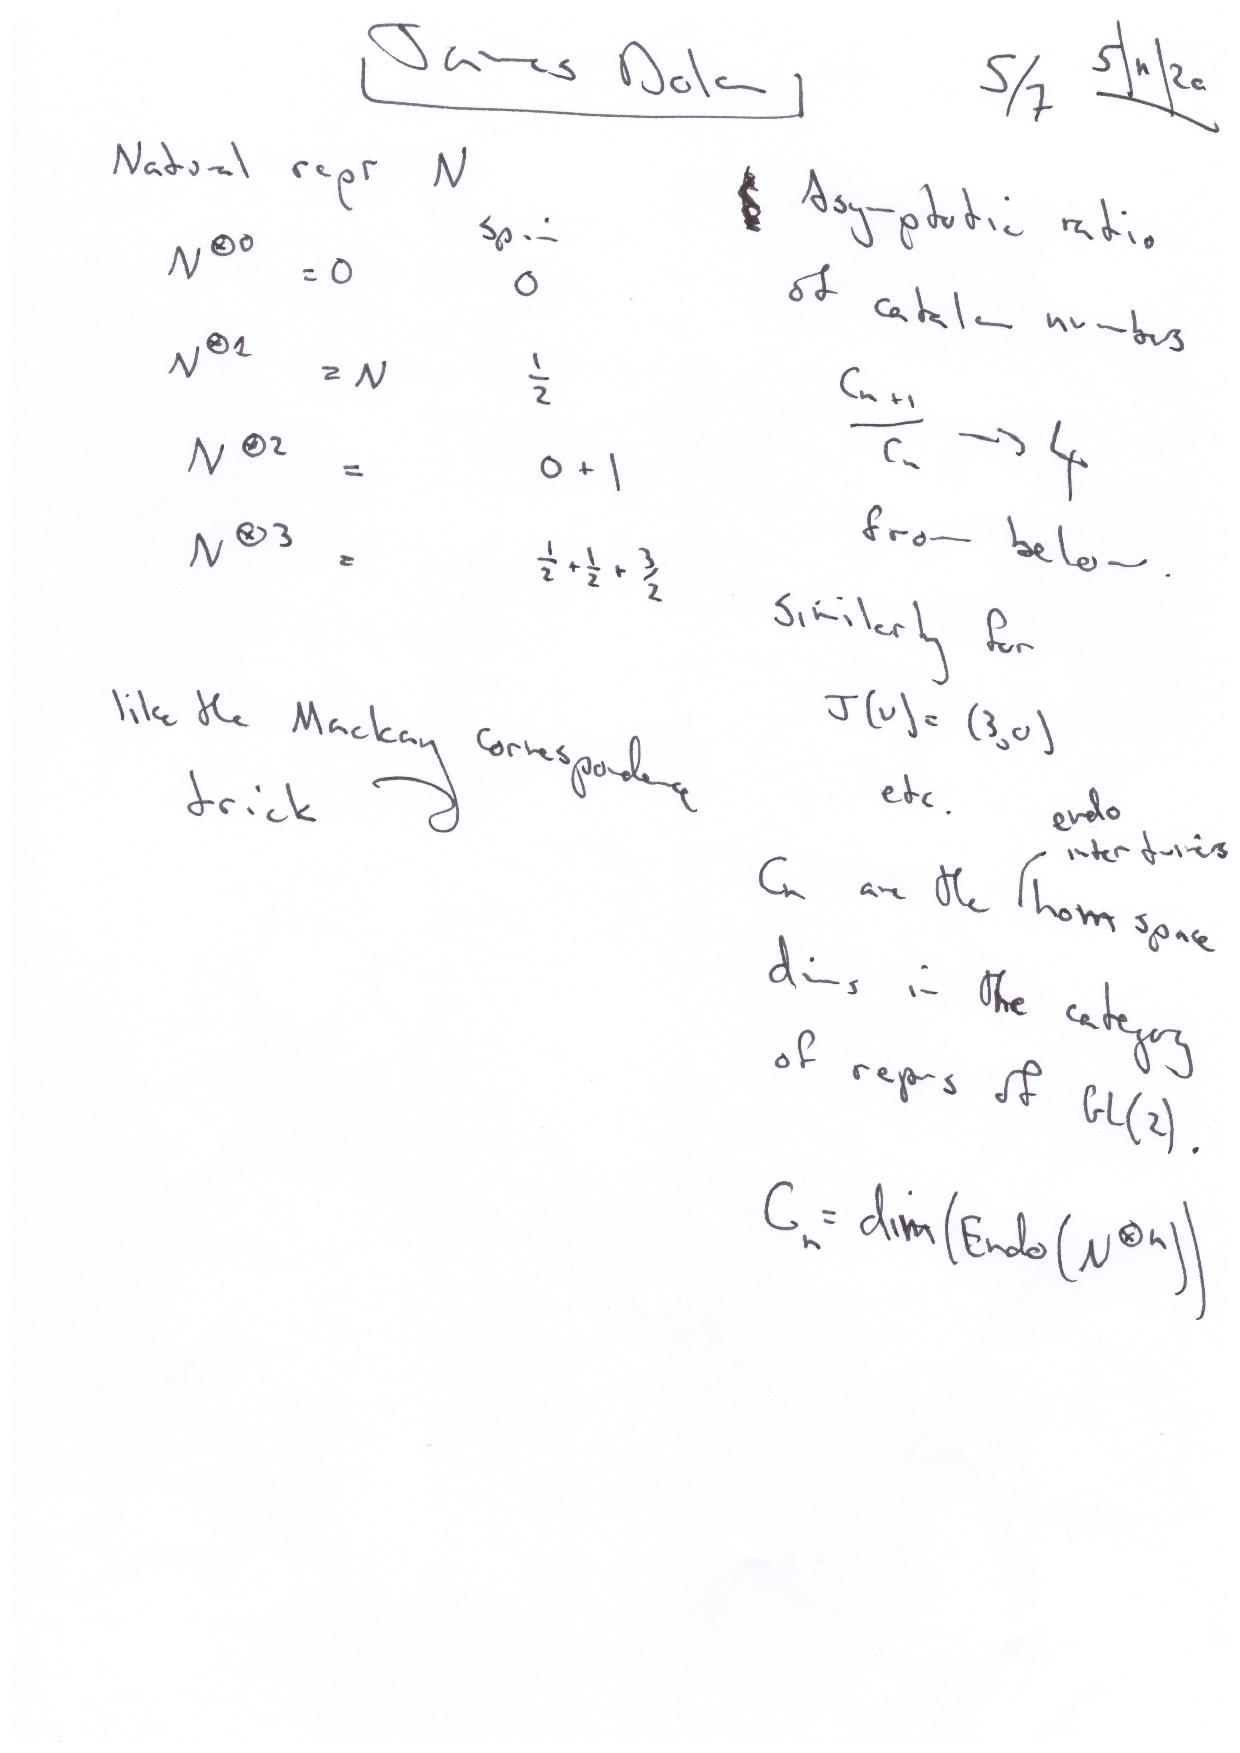 James Dolan
5/7 5/11/20
Natural repr N
spin
N⊗0 = 0 0
N⊗1 = N 1/2
N⊗2 = 0 + 1
N⊗3 = 1/2 + 1/2 + 3/2
like the Mackay correspondence
trick
Asymptotic ratio
of catalan numbers
Cn+1/Cn → 4
from below.
Similarly for
J(v) = (3,0)
etc.
endo
intertwiners
Cn are the hom space
dims in the category
of reprs of GL(2).
Cn = dim(Endo(N⊗n))